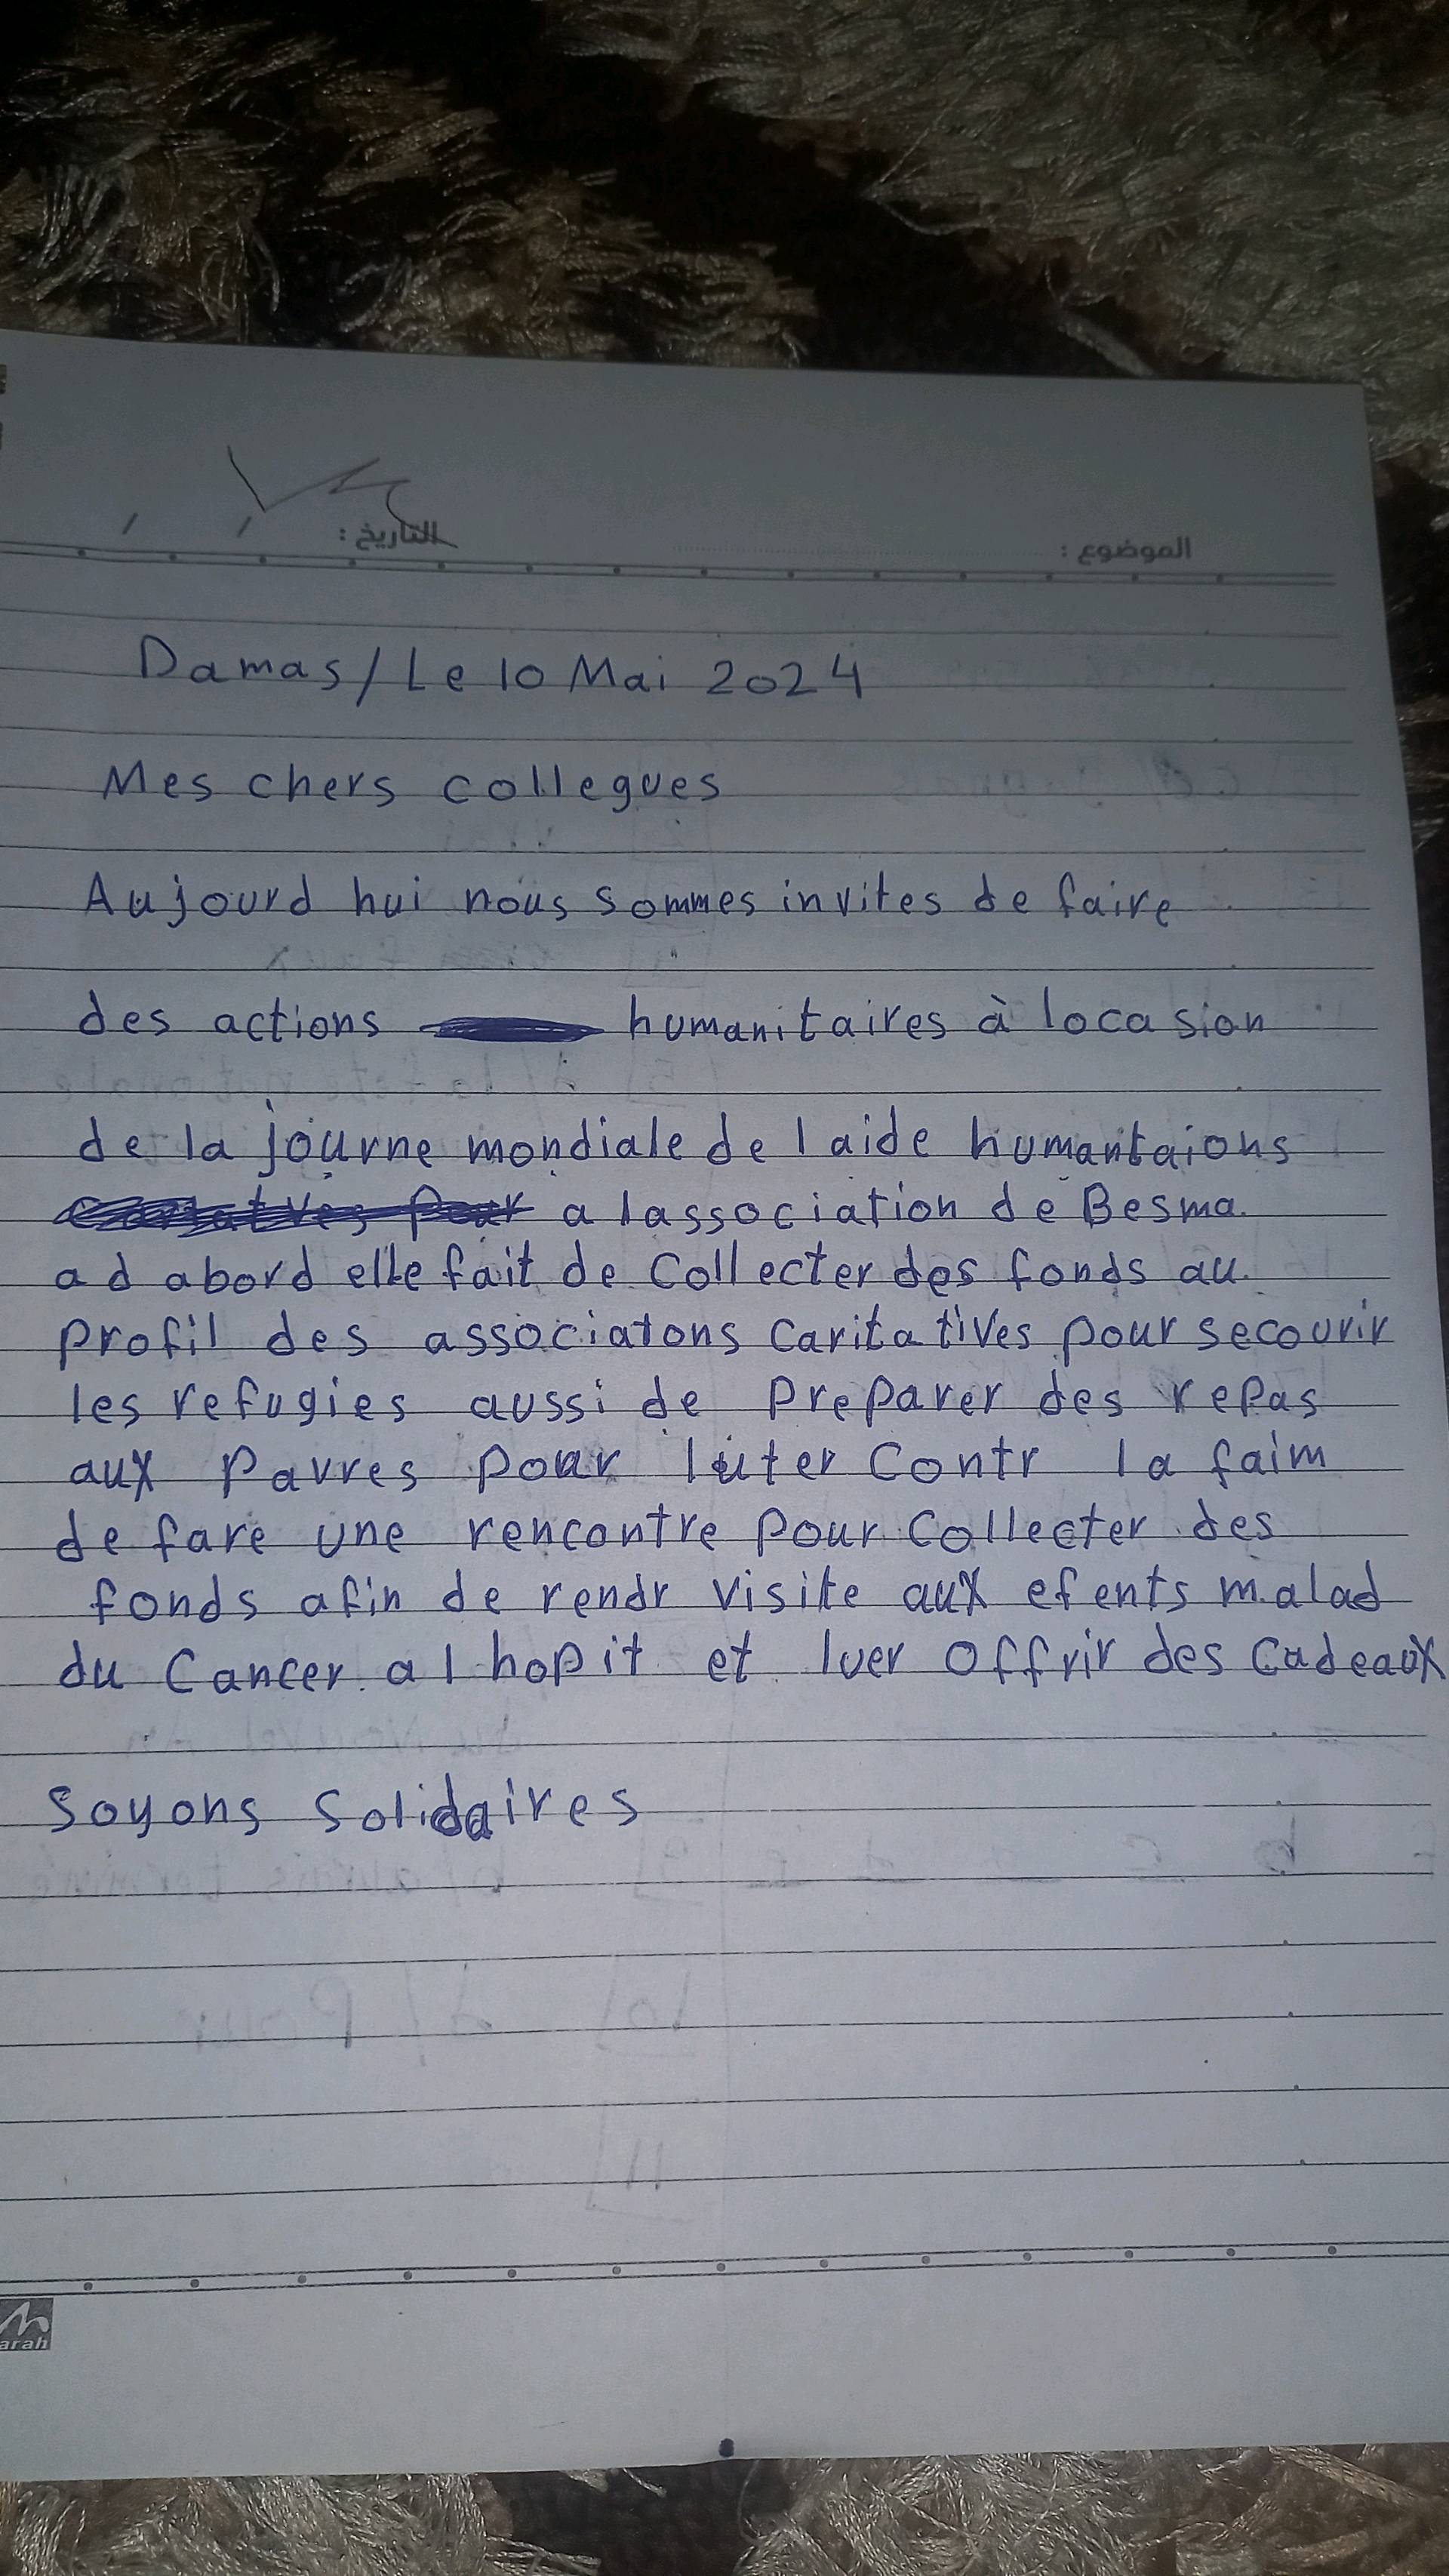 الموضوع : التاريخ : / /
Damas/Le 10 Mai 2024
Mes chers collegues
Aujourd hui nous sommes invites de faire
des actions humanitaires à locasion
de la journe mondiale de l aide humantaions
a lassociation de Besma.
ad abord elle fait de Collecter des fonds au.
profil des associatons Caritatives pour secourir
les refugies aussi de Preparer des repas
aux Pavres pour luter Contr la faim
de fare une rencontre pour Collecter des
fonds afin de rendr visite aux efents malad
du Cancer. a l hopit et luer offrir des Cadeaux
Soyons Solidaires
arah